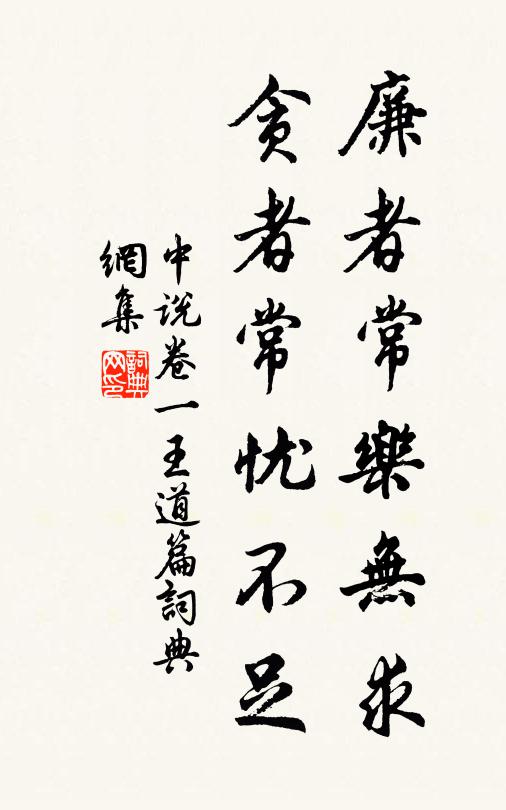 廉者常樂無求
貪者常忧不足
中説卷一王道篇詞典
網集
詞典
网印